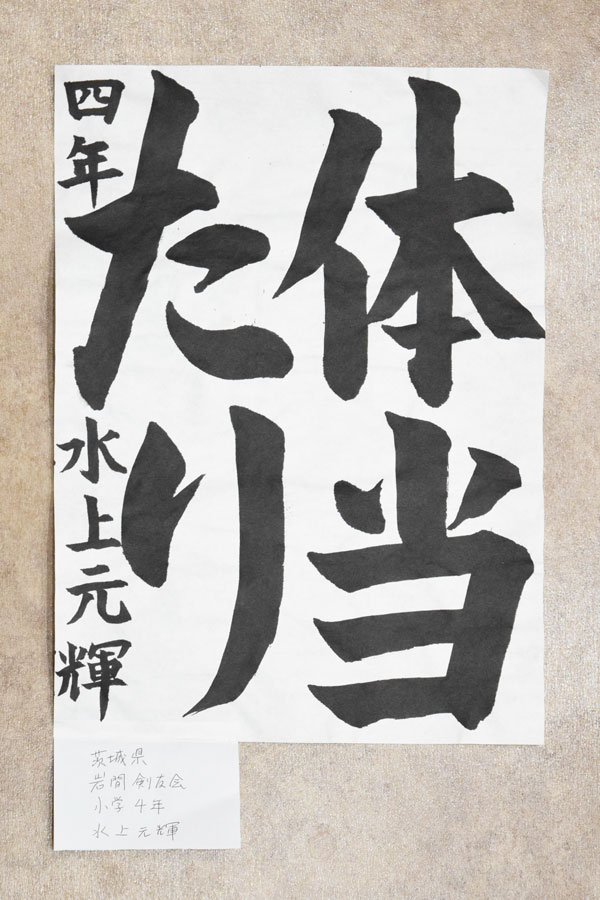 体当
たり
四年 水上元輝
茨城県
岩間剣友会
小学4年
水上元輝